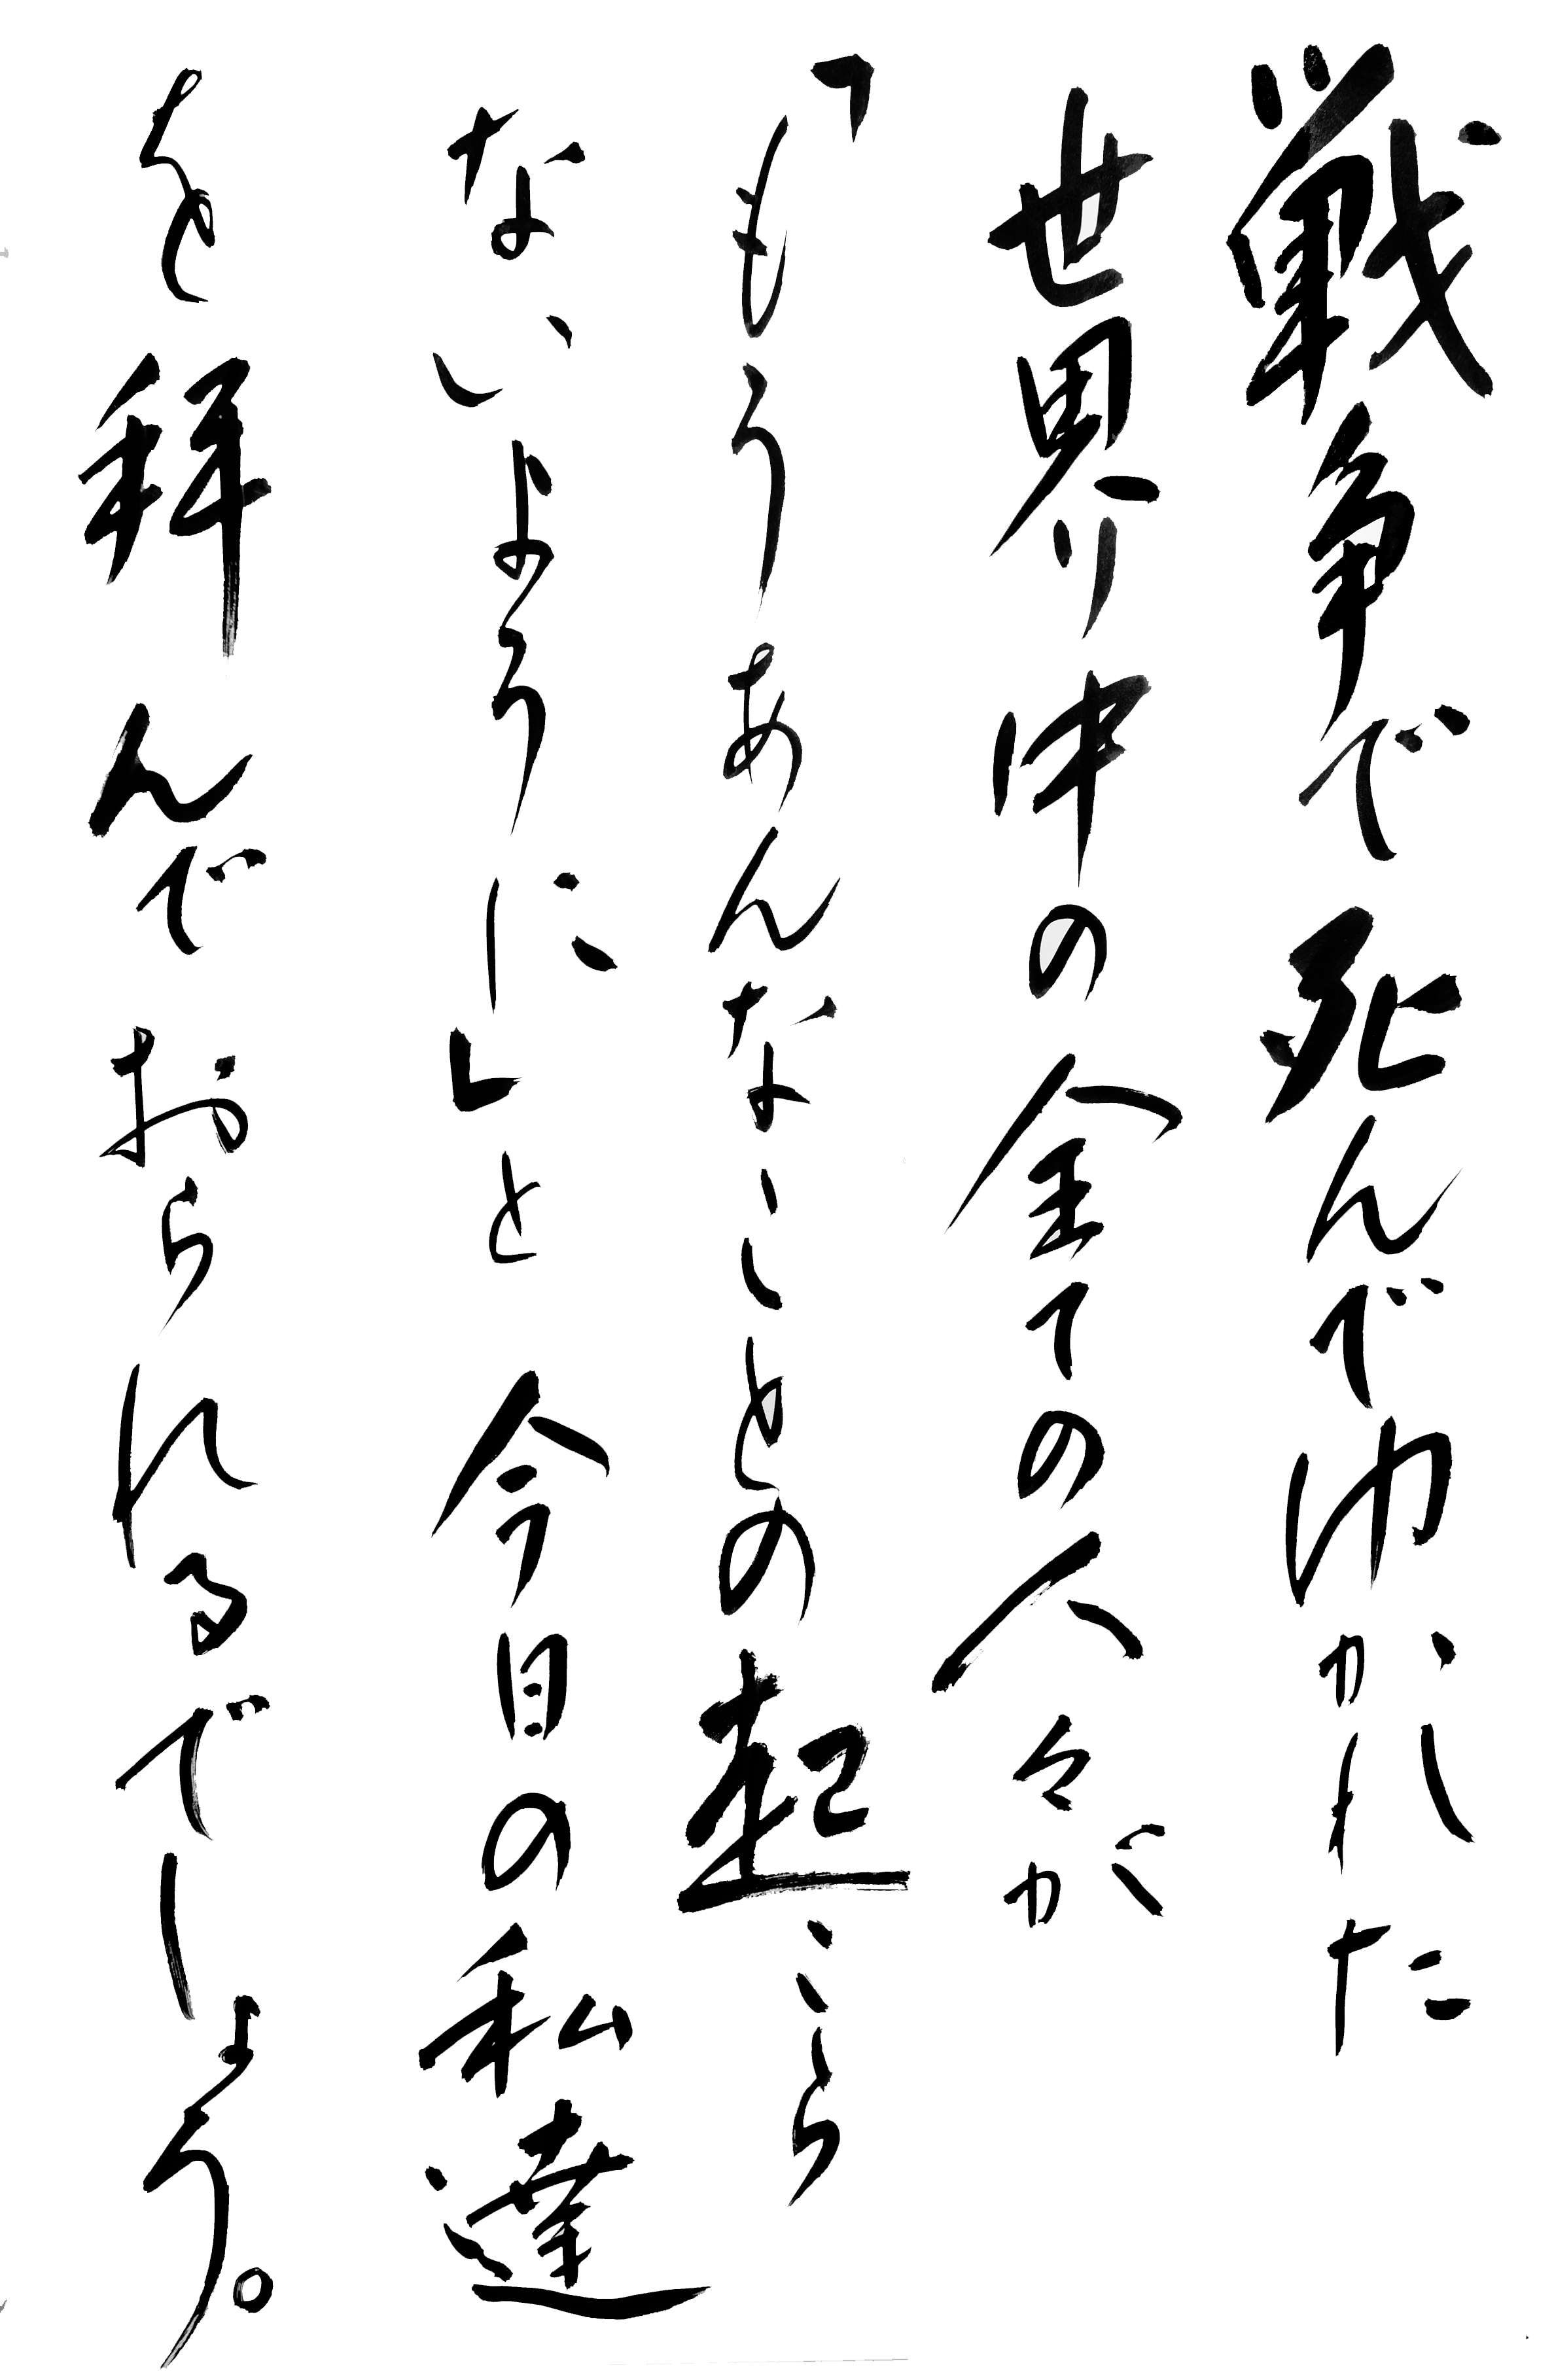 戦争で死んでゆかれた
世界中の全ての人々が
「もうあんなことの起こら
ないように」と今日の私達
を拝んでおられるでしょう。